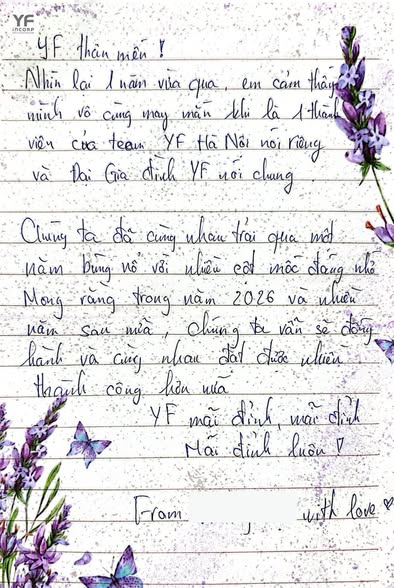 YF
INCORP
YF thân mến !
Nhìn lại 1 năm vừa qua, em cảm thấy
mình vô cùng may mắn khi là 1 thành
viên của team YF Hà Nội nói riêng
và Đại Gia đình YF nói chung
Chúng ta đã cùng nhau trải qua một
năm bùng nổ với nhiều cột mốc đáng nhớ
Mong rằng trong năm 2026 và nhiều
năm sau nữa, chúng ta vẫn sẽ đồng
hành và cùng nhau đạt được nhiều
thành công hơn nữa
YF mãi đỉnh, mãi đỉnh
Mãi đỉnh luôn !
From with love